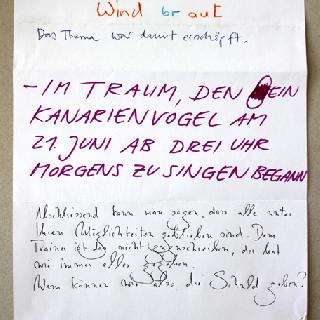 Wind br aut
Das Thema war damit erschöpft.
- IM TRAUM, DEN EIN
KANARIENVOGEL AM
21. JUNI AB DREI UHR
MORGENS ZU SINGEN BEGANN
Abschliessend kann man sagen, dass alle unter
ihren Möglichkeiten geblieben sind. Dem
Trainer ist das nicht zuzuschreiben, der hat
wie immer alles gegeben.
Wem können wir also die Schuld geben?